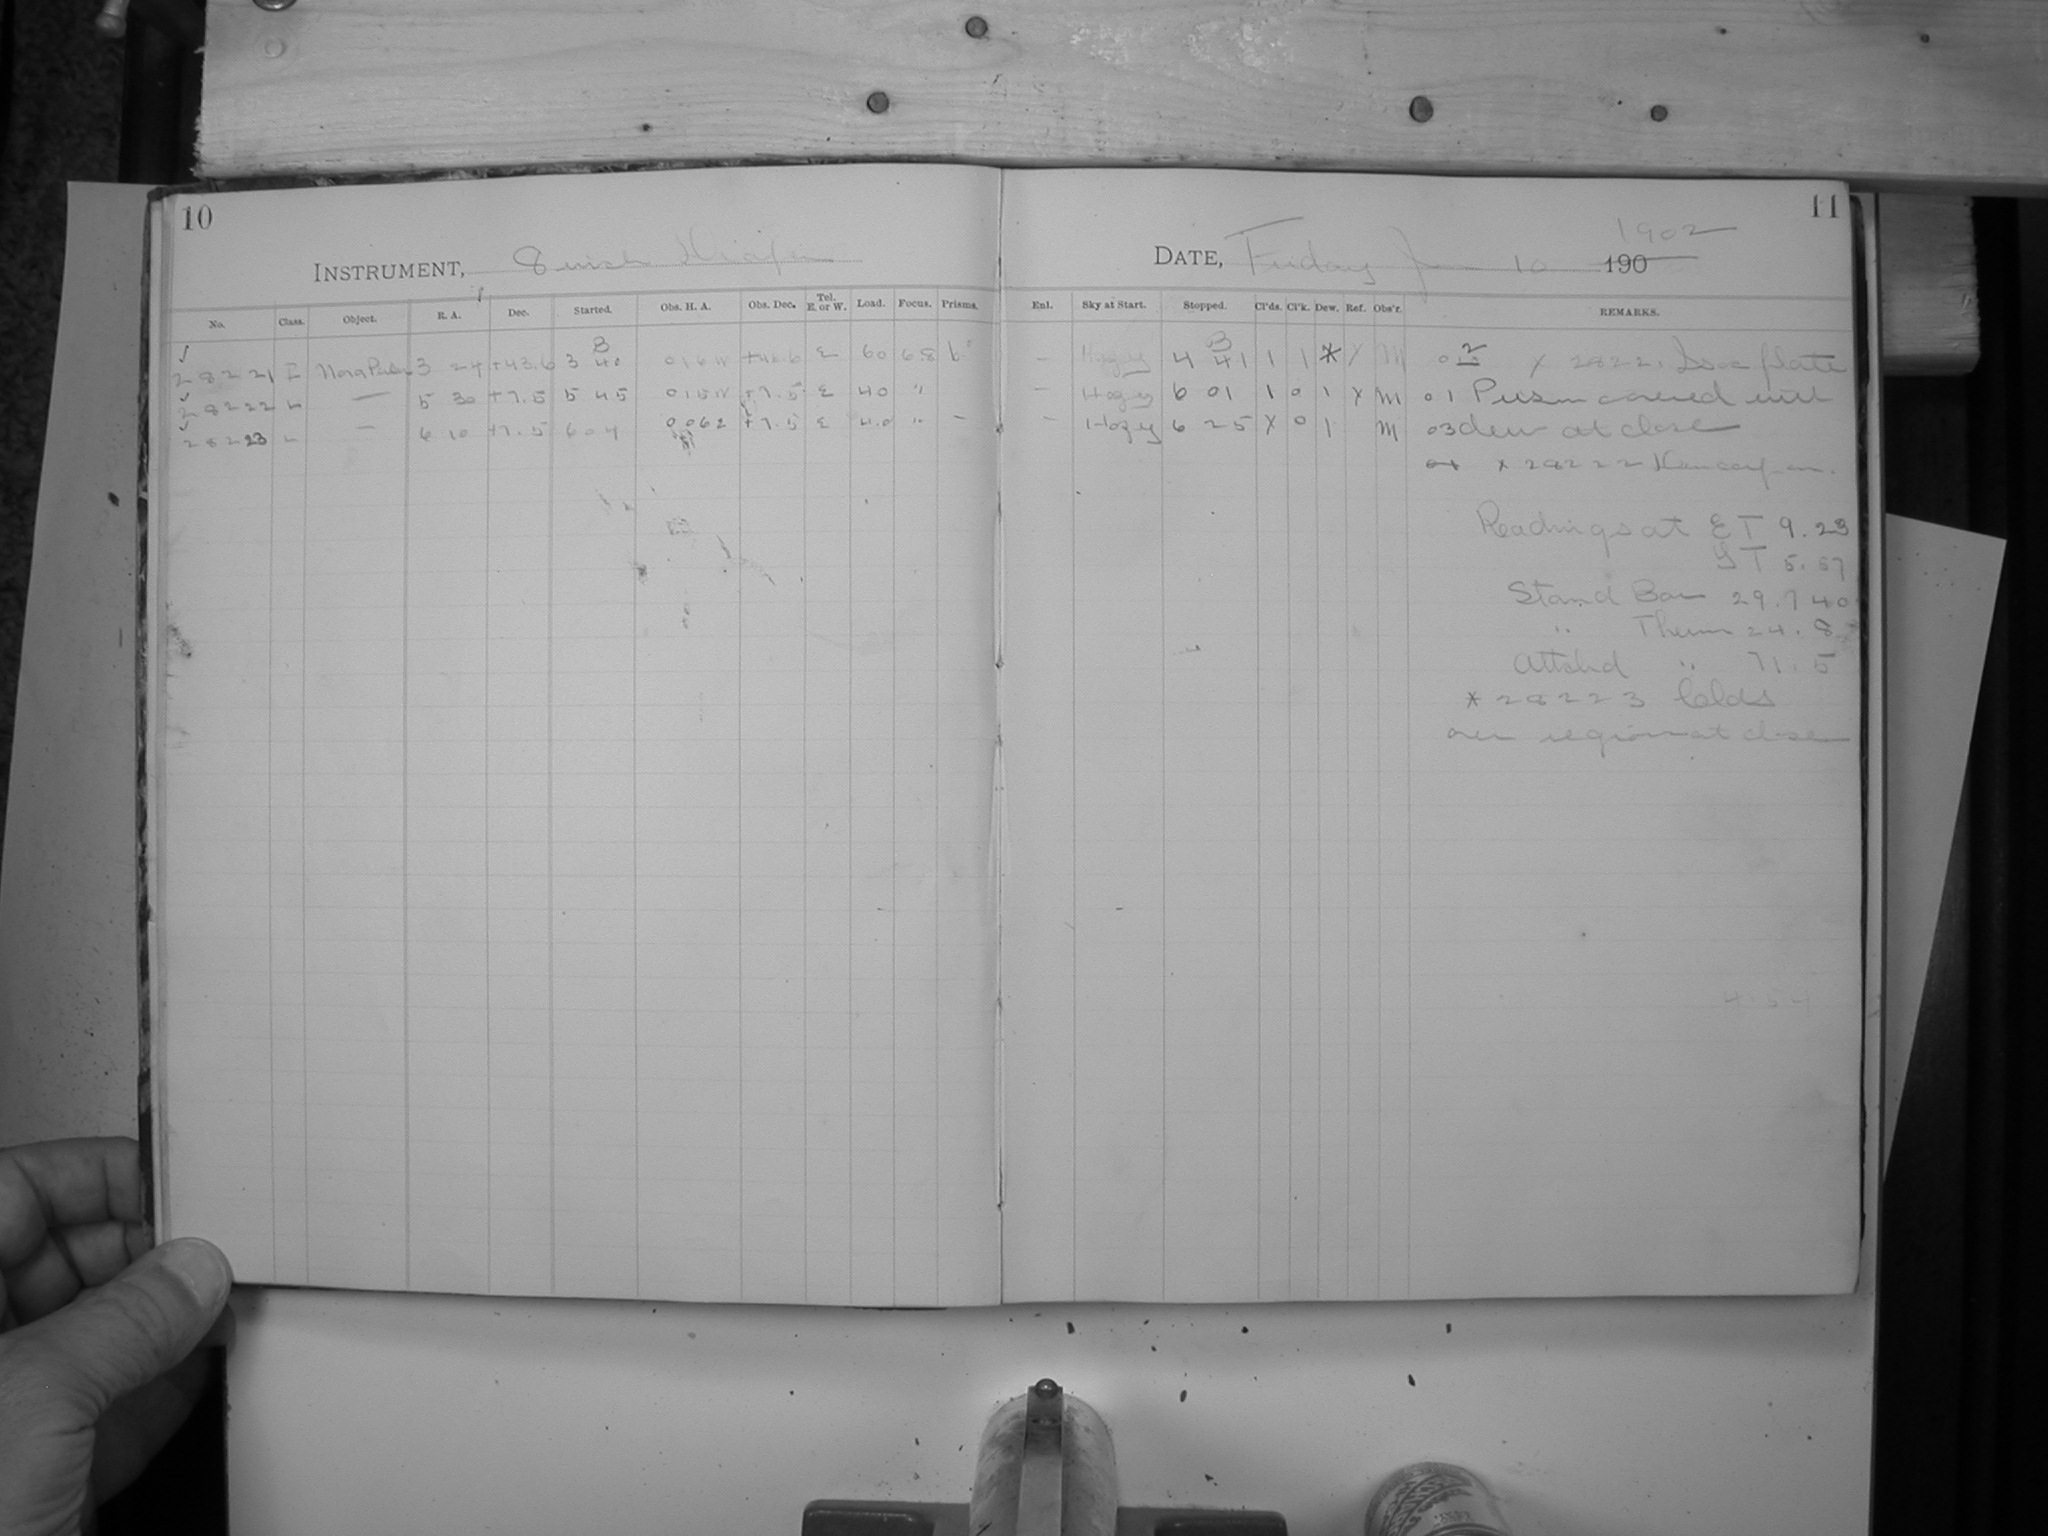 10
INSTRUMENT, 8 inch Draper
No. Class. Object. R. A. Dec. Started. Obs. H. A. Obs. Dec. Tel. E. or W. Load. Focus. Prisms.
28221 I Nova Persei 3 24 +43.6 3 40 +43.6 E 60 68
28222 L — 5 30 +7.5 5 45 +7.5 E 40 "
28223 L — 6 10 +7.5 6 04 0 062 +7.5 E 40 " —
11
DATE, Friday Jan 10 190
1902
Enl. Sky at Start. Stopped. Cl'ds. Cl'k. Dew. Ref. Obs'r. REMARKS.
— Hazy 4 41 1 1 * X M plate
— Hazy 6 01 1 0 1 X M 01 Prism covered with
— Hazy 6 25 X 0 1 M 03 dew at close
x 28222
Readings at E T 9.23
S T 5.57
Stand Bar 29.740
" Therm 24.8
Attchd " 71.5
* 28223 Cclds
over region at close
4.54